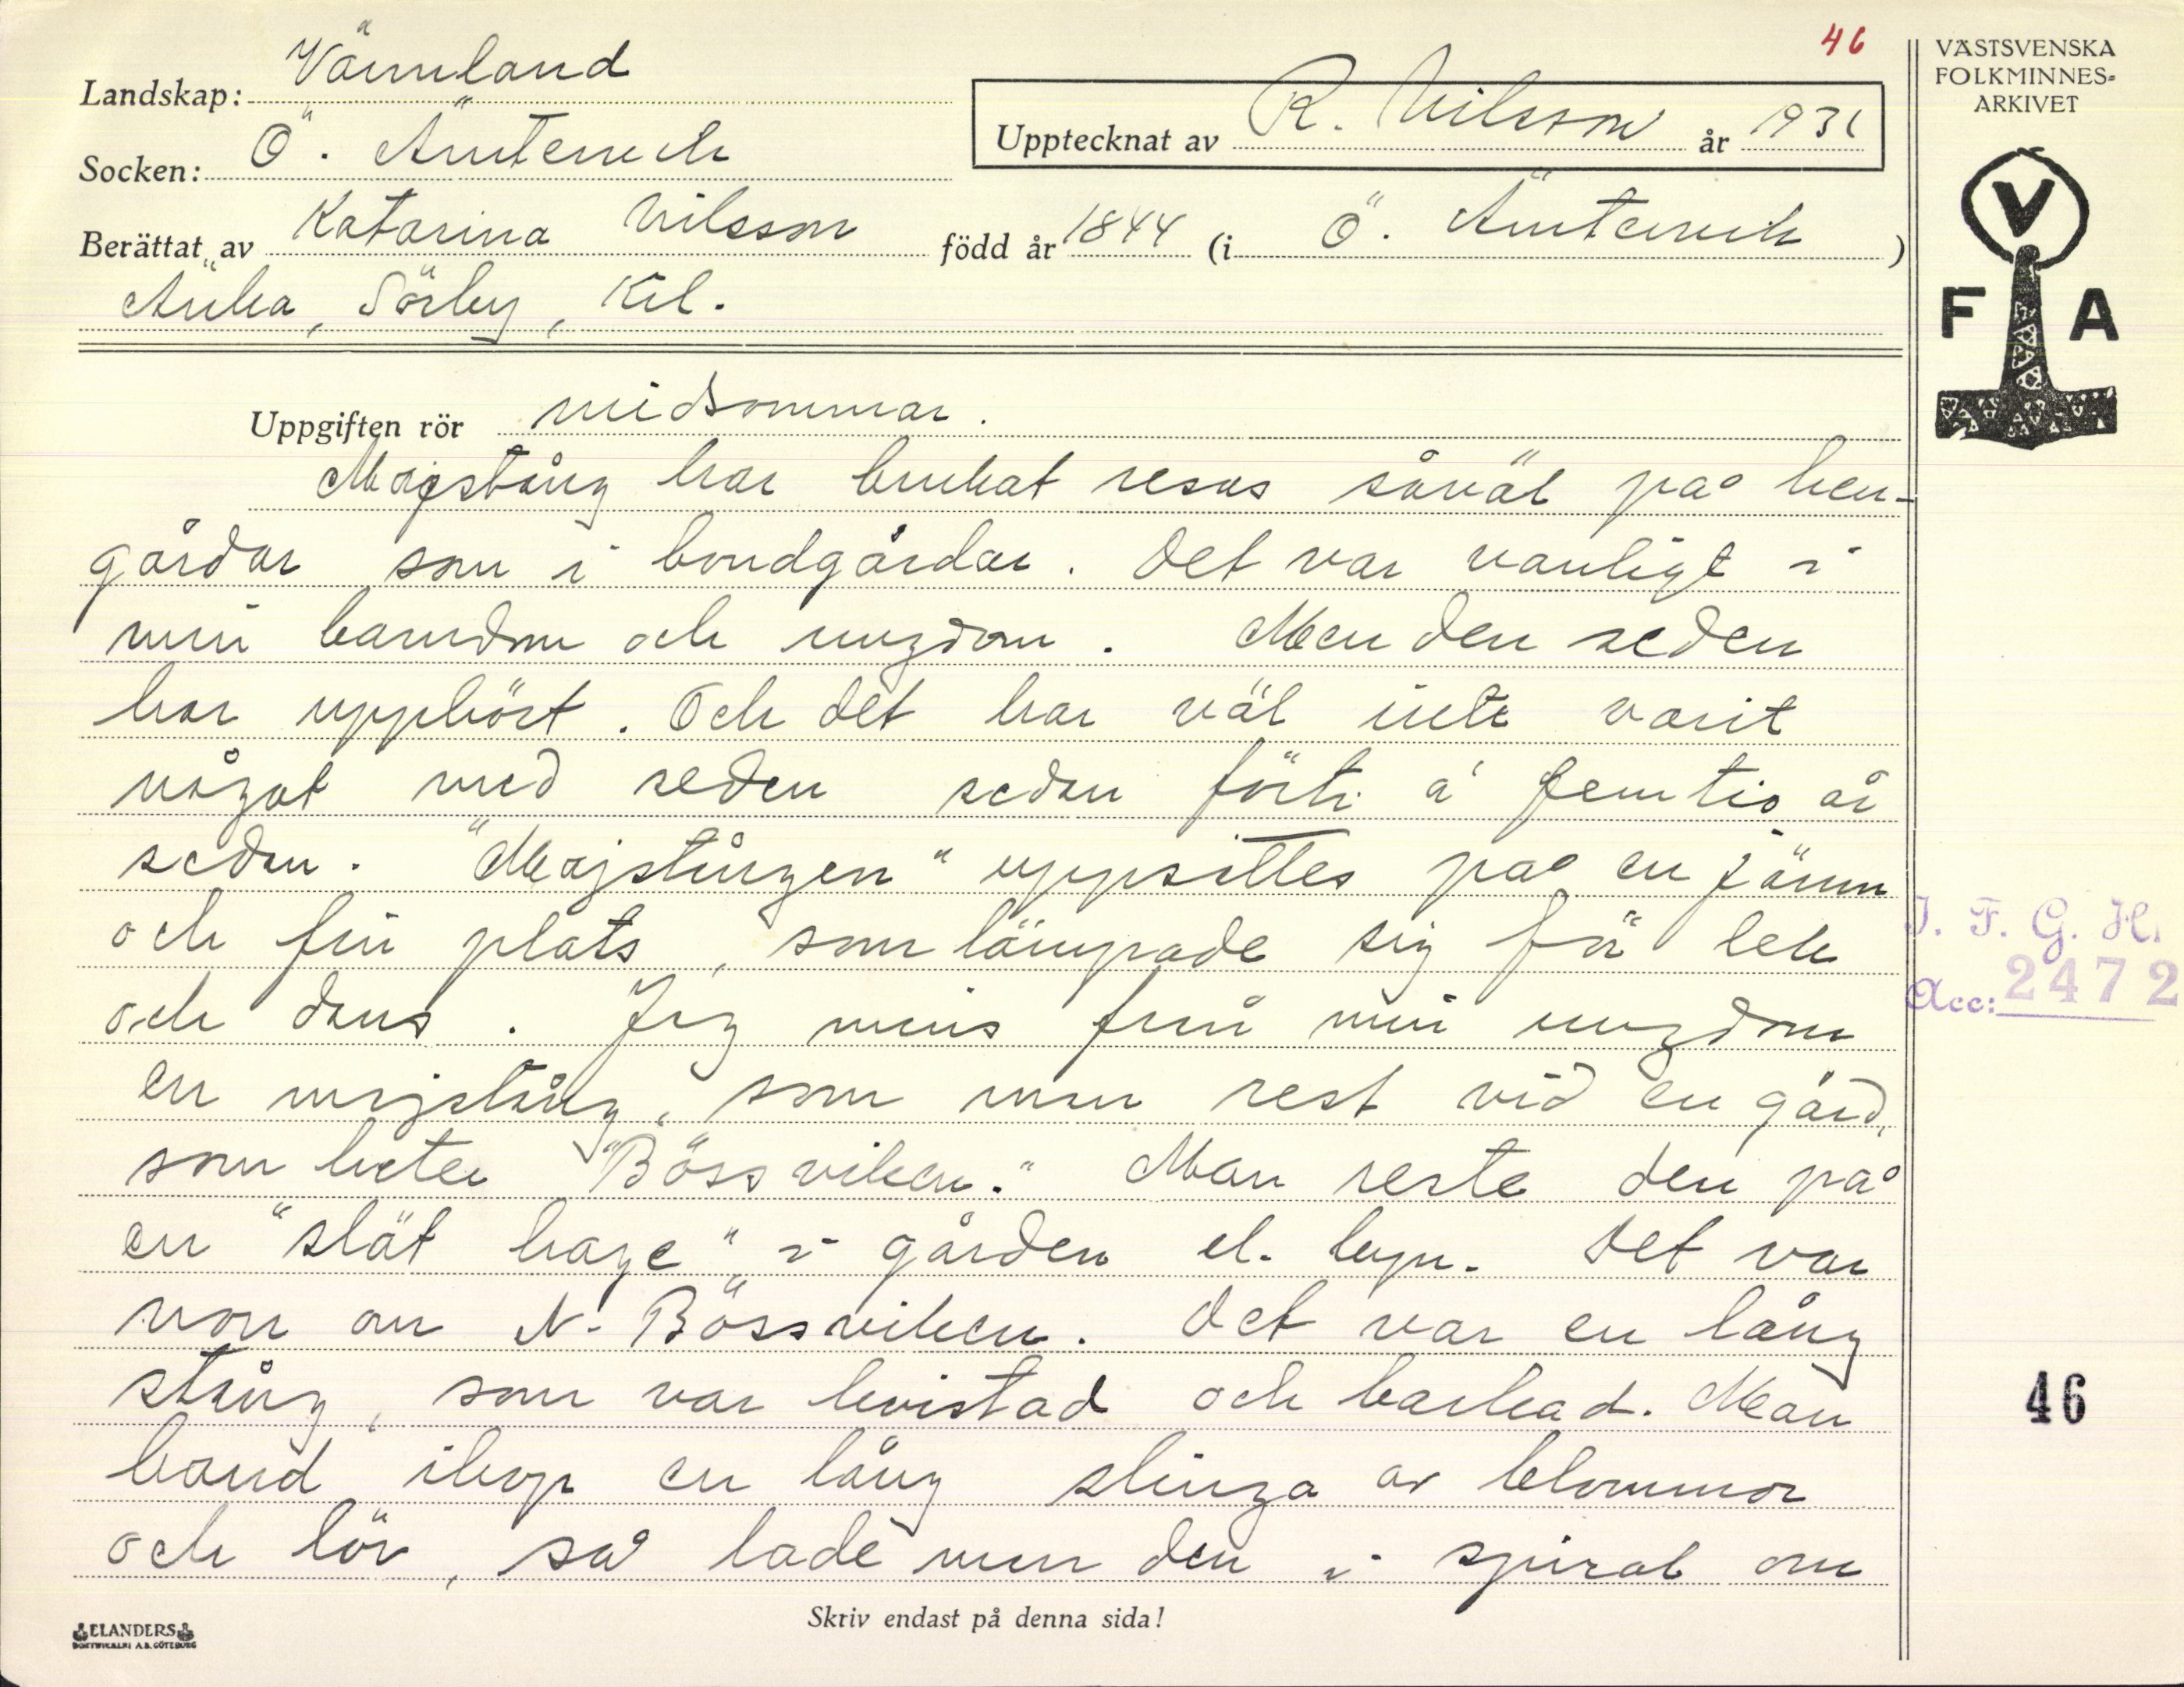 46
VÄSTSVENSKA
FOLKMINNES-
ARKIVET
V
F A
Landskap: Värmland
Socken: Ö. Ämtervik
Upptecknat av R. Nilsson år 1931
Berättat av Katarina Nilsson född år 1844 (i Ö. Ämtervik )
Änka, Sörby, Kil.
Uppgiften rör midsommar.
Majstång har brukat resas såväl på herr-
gårdar som i bondgårdar. Det var vanligt i
min barndom och ungdom. Men den seden
har upphört. Och det har väl inte varit
något med seden sedan förti å femtio år
sedan. "Majstången" uppsattes på en jämn
och fin plats, som lämpade sig för lek
och dans. Jag minns från min ungdom
en majstång, som man rest vid en gård,
som heter "Bössviken." Man reste den på
en "slät hage" i gården el. byn. Det var
norr om N. Bössviken. Det var en lång
stång, som var kvistad och barkad. Man
band ihop en lång slinga av blommor
och löv, så lade man den i spiral om
I. F. G. H.
Acc: 2472
46
Skriv endast på denna sida!
ELANDERS
BOKTRYCKERI A.B. GÖTEBORG